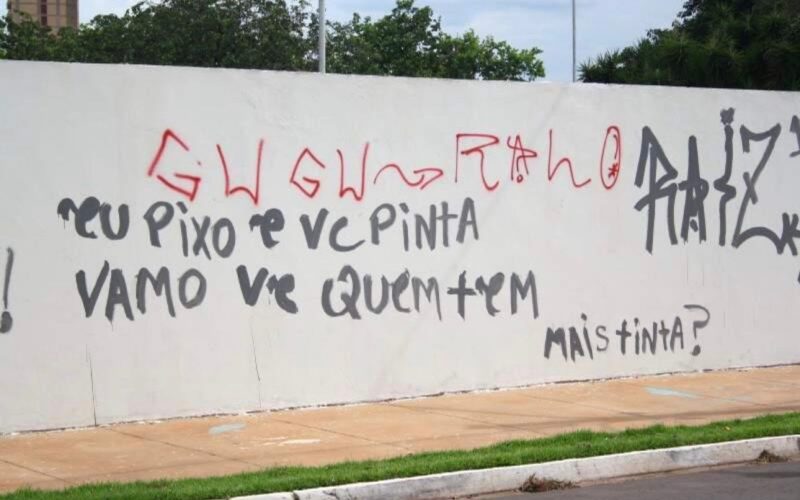 GUGU RALO
RAIZ
eu PIXO e VC PINTA
VAMO Ve QUEM teM
MAIS tINtA?
!